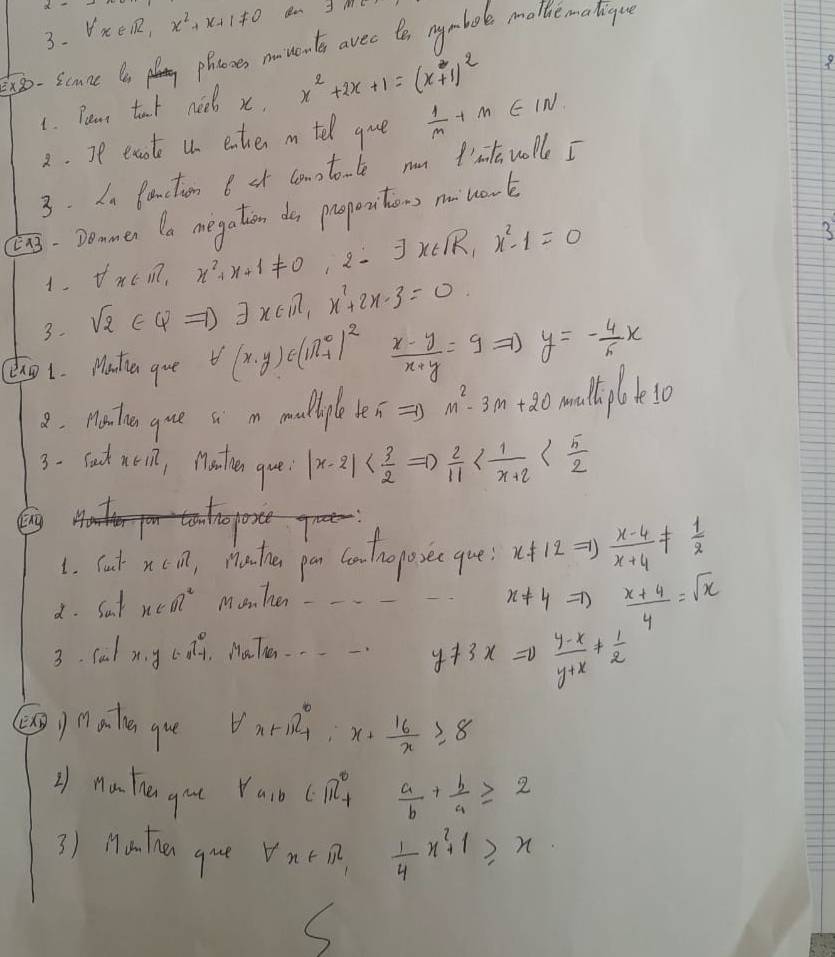 3 - ∀x∈IR, x²+x+1≠0 ou ∃
EX2 - Ecrire les phrases suivantes avec les symbole mathématique
1. Pour tout réels x, x²+2x+1=(x+1)²
2. Il existe un entier n tel que 1/n + n ∈ IN.
3 - La fonction f est constante sur l'intervalle I
EX3 - Donner la négation des propositions suivante
1 - ∀x∈IR, x²+x+1≠0, 2 - ∃x∈IR, x²-1=0
3 - √2 ∈ Q => ∃x∈IR, x²+2x-3=0.
EX4 1 - Montrer que ∀(x,y)∈(IR*+)² (x-y)/(x+y) = 9 => y = -4/5 x
2 - Montrer que si n multiple de 5 => n²-3n+20 multiple de 10
3 - Soit x∈IR, Montrer que: |x-2| < 3/2 => 2/11 < 1/(x+2) < 5/2
EX4 Montrer par contraposée que:
1. Soit x∈IR, Montrer par contraposée que: x≠12 => (x-4)/(x+4) ≠ 1/2
2. Soit x∈IR* montrer - - - - - - x≠4 => (x+4)/4 = √x
3 - Soit x,y∈IR*+. Montrer - - - - . y≠3x => (y-x)/(y+x) ≠ 1/2
1) Montrer que ∀x∈IR*+ ; x + 16/x ≥ 8
2) Montrer que ∀a,b∈IR*+ a/b + b/a ≥ 2
3) Montrer que ∀x∈IR, 1/4 x²+1 ≥ x.